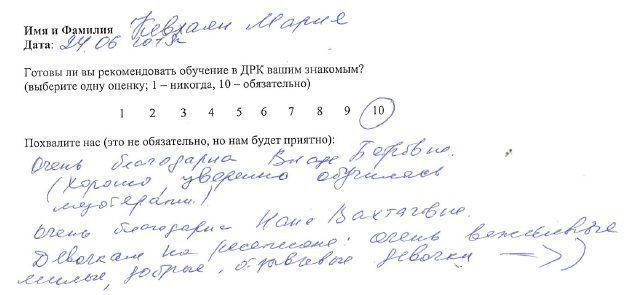 Имя и Фамилия Кевхаян Мария
Дата: 24.06 2015г
Готовы ли вы рекомендовать обучение в ДРК вашим знакомым?
(выберите одну оценку; 1 – никогда, 10 – обязательно)
1 2 3 4 5 6 7 8 9 10
Похвалите нас (это не обязательно, но нам будет приятно):
Очень благодарна Владе Боровне.
(Хорошо, уверенно обучилась
мезотерапии.)
Очень благодарна Нане Вахтаговне.
Девочкам на ресепшене. очень вежливые
милые, добрые, отзывчивые девочки